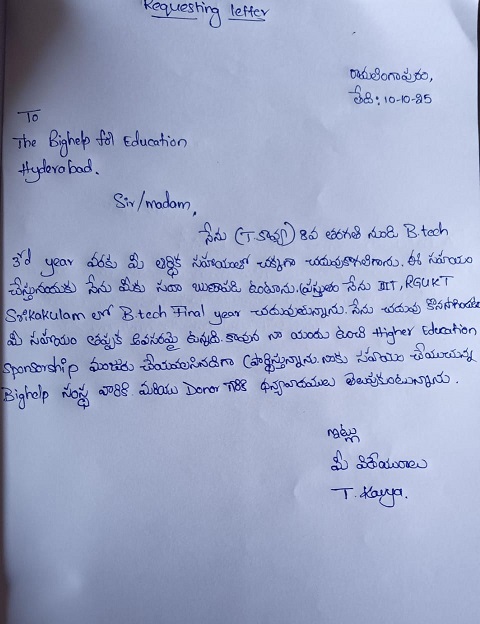 Requesting letter
రామలింగాపురం,
తేది: 10-10-25
To
The Bighelp for Education
Hyderabad.
Sir/madam,
నేను (T.కావ్య) 8వ తరగతి నుండి B.tech
3rd year వరకు మీ ఆర్థిక సహాయంతో చక్కగా చదువుకోగలిగాను. ఈ సహాయం
చేస్తునందుకు నేను మీకు సదా ఋణపడి ఉంటాను. ప్రస్తుతం నేను IIIT, RGUKT
Srikakulam లో B.tech Final year చదువుతున్నాను. నేను చదువు కొనసాగించుటకు
మీ సహాయం తప్పక అవసరమై ఉన్నది. కావున నా యందు ఉంచి Higher Education
sponsorship మంజూరు చేయవలసినదిగా ప్రార్థిస్తున్నాను. నాకు సహాయం చేయుచున్న
Bighelp సంస్థ వారికి మరియు Donor గారికి ధన్యవాదములు తెలుపుకుంటున్నాను.
ఇట్లు
మీ విధేయురాలు
T. Kavya.